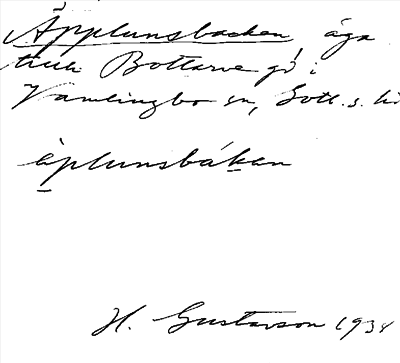 Äpplunsbacken, äga
till Bottarve gd i
Vamlingbo sn, Gotl. s. hd
äplunsbákan
H. Gustavson 1934